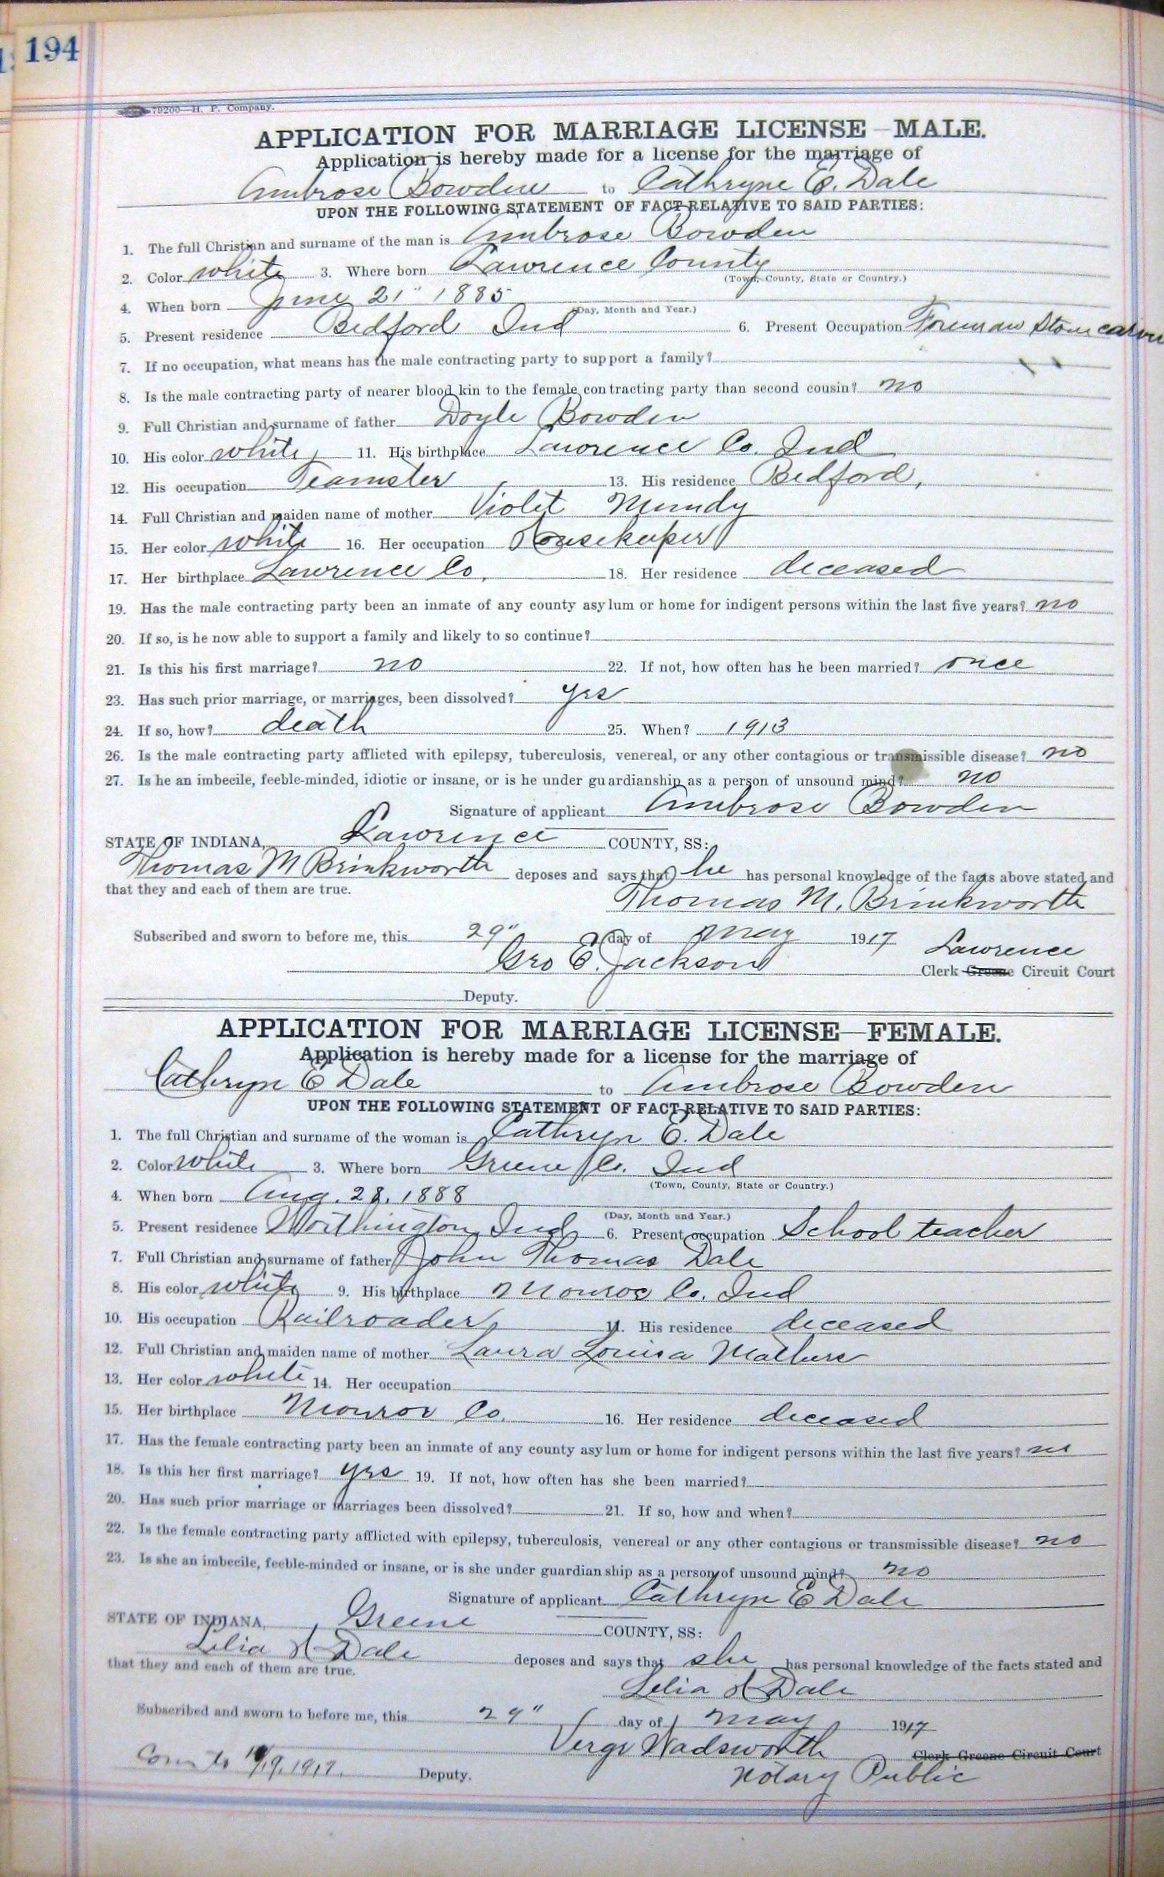 194
79200—H. P. Company.
APPLICATION FOR MARRIAGE LICENSE—MALE.
Application is hereby made for a license for the marriage of
Ambrose Bowden to Cathryne E. Dale
UPON THE FOLLOWING STATEMENT OF FACT RELATIVE TO SAID PARTIES:
1. The full Christian and surname of the man is Ambrose Bowden
2. Color white 3. Where born Lawrence County
(Town, County, State or Country.)
4. When born June 21" 1885
(Day, Month and Year.)
5. Present residence Bedford Ind 6. Present Occupation Foreman Stone carver
7. If no occupation, what means has the male contracting party to support a family?
8. Is the male contracting party of nearer blood kin to the female contracting party than second cousin? no
9. Full Christian and surname of father Doyle Bowden
10. His color white 11. His birthplace Lawrence Co. Ind
12. His occupation Teamster 13. His residence Bedford,
14. Full Christian and maiden name of mother Violet Mundy
15. Her color white 16. Her occupation Housekeeper
17. Her birthplace Lawrence Co. 18. Her residence deceased
19. Has the male contracting party been an inmate of any county asylum or home for indigent persons within the last five years? no
20. If so, is he now able to support a family and likely to so continue?
21. Is this his first marriage? no 22. If not, how often has he been married? once
23. Has such prior marriage, or marriages, been dissolved? yes
24. If so, how? death 25. When? 1913
26. Is the male contracting party afflicted with epilepsy, tuberculosis, venereal, or any other contagious or transmissible disease? no
27. Is he an imbecile, feeble-minded, idiotic or insane, or is he under guardianship as a person of unsound mind? no
Signature of applicant Ambrose Bowden
STATE OF INDIANA, Lawrence COUNTY, SS:
Thomas M Brinkworth deposes and says that he has personal knowledge of the facts above stated and
that they and each of them are true. Thomas M. Brinkworth
Subscribed and sworn to before me, this 29" day of May 1917 Lawrence
Geo E. Jackson Clerk Greene Circuit Court
Deputy.
APPLICATION FOR MARRIAGE LICENSE—FEMALE.
Application is hereby made for a license for the marriage of
Cathryn E Dale to Ambrose Bowden
UPON THE FOLLOWING STATEMENT OF FACT RELATIVE TO SAID PARTIES:
1. The full Christian and surname of the woman is Cathryn E. Dale
2. Color white 3. Where born Greene Co. Ind
(Town, County, State or Country.)
4. When born Aug. 28, 1888
(Day, Month and Year.)
5. Present residence Worthington, Ind 6. Present occupation School teacher
7. Full Christian and surname of father John Thomas Dale
8. His color white 9. His birthplace Monroe Co. Ind
10. His occupation Railroader 11. His residence deceased
12. Full Christian and maiden name of mother Laura Louisa Mathers
13. Her color white 14. Her occupation
15. Her birthplace Monroe Co. 16. Her residence deceased
17. Has the female contracting party been an inmate of any county asylum or home for indigent persons within the last five years? no
18. Is this her first marriage? yes 19. If not, how often has she been married?
20. Has such prior marriage or marriages been dissolved? 21. If so, how and when?
22. Is the female contracting party afflicted with epilepsy, tuberculosis, venereal or any other contagious or transmissible disease? no
23. Is she an imbecile, feeble-minded or insane, or is she under guardianship as a person of unsound mind? no
Signature of applicant Cathryn E Dale
STATE OF INDIANA, Greene COUNTY, SS:
Lelia Dale deposes and says that she has personal knowledge of the facts stated and
that they and each of them are true. Lelia Dale
Subscribed and sworn to before me, this 29" day of May 1917
Verge Wadsworth Clerk Greene Circuit Court
1917. Deputy. Notary Public